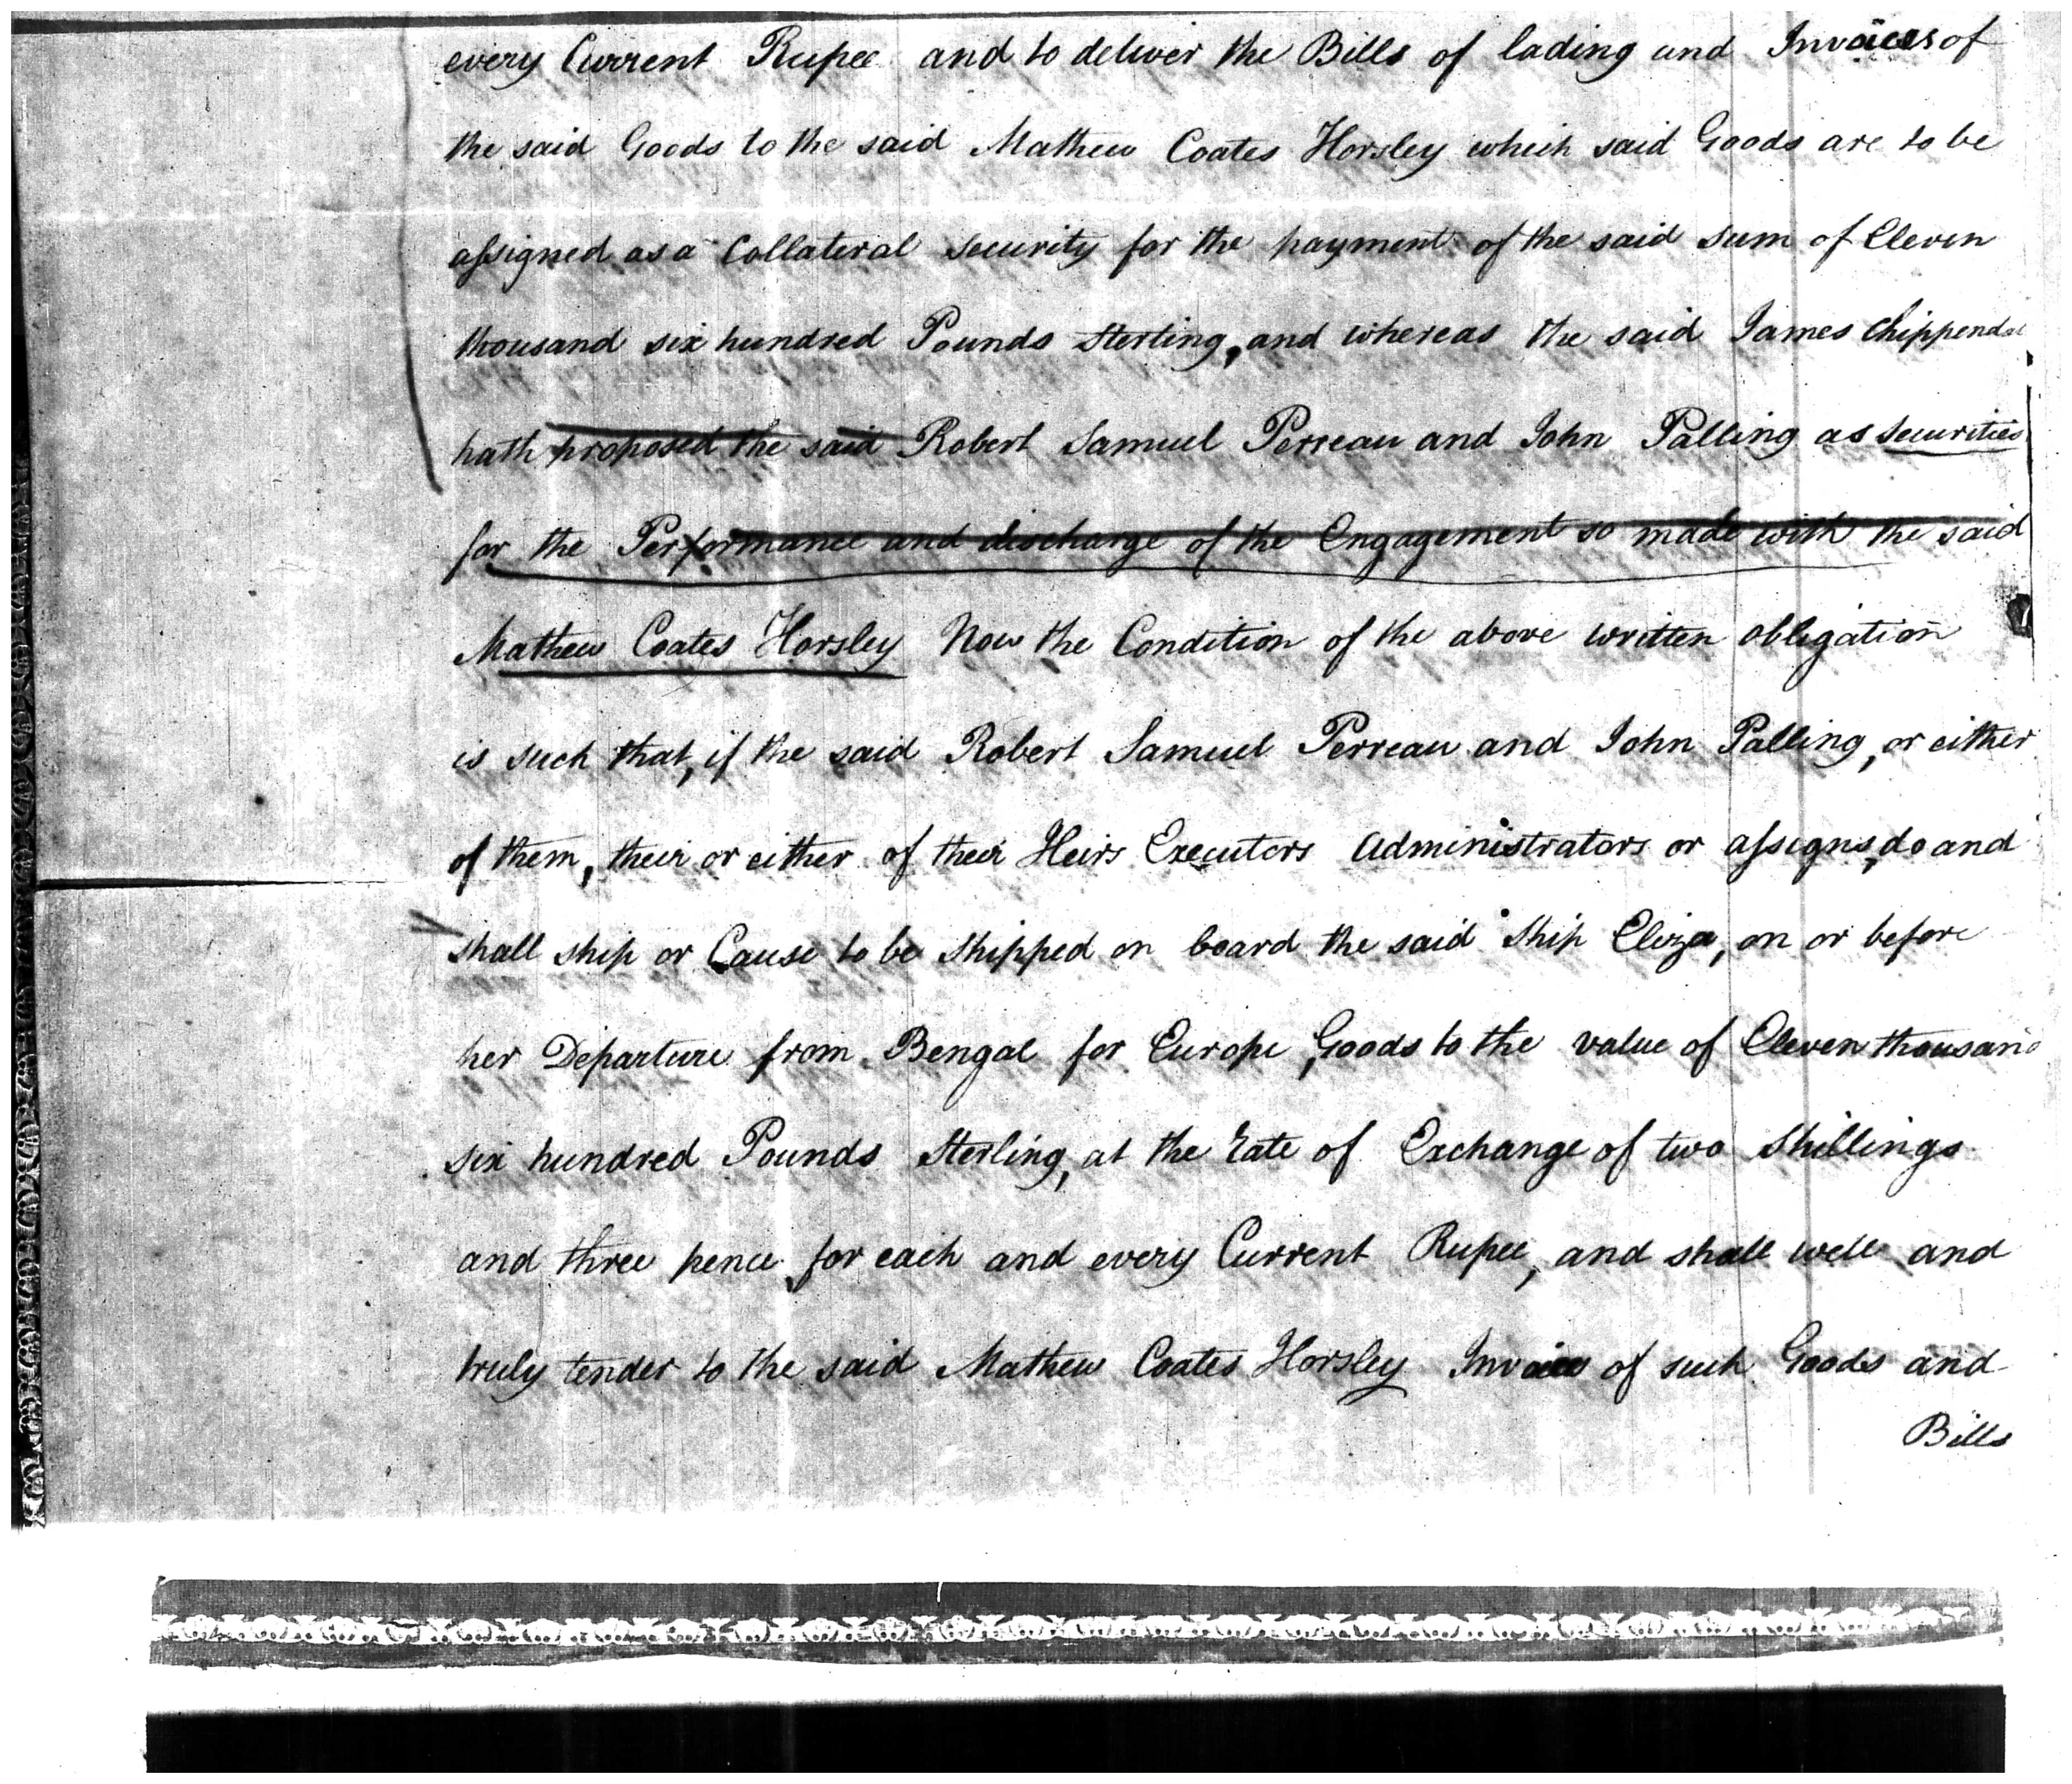 every Current Rupee and to deliver the Bills of lading and Invoices of
the said Goods to the said Mathew Coates Horsley which said Goods are to be
assigned as a Collateral security for the payment of the said sum of Eleven
thousand six hundred Pounds Sterling, and whereas the said James Chippendal
hath proposed the said Robert Samuel Perreau and John Palling as Securities
for the Performance and discharge of the Engagement so made with the said
Mathew Coates Horsley Now the Condition of the above written obligation
is such that, if the said Robert Samuel Perreau and John Palling, or either
of them, their or either of their Heirs Executors Administrators or assigns, do and
shall ship or Cause to be shipped on board the said Ship Eliza, on or before
her Departure from Bengal for Europe, Goods to the value of Eleven thousand
six hundred Pounds Sterling, at the rate of Exchange of two Shillings
and three pence for each and every Current Rupee, and shall well and
truly tender to the said Mathew Coates Horsley Invoices of such Goods and
Bills